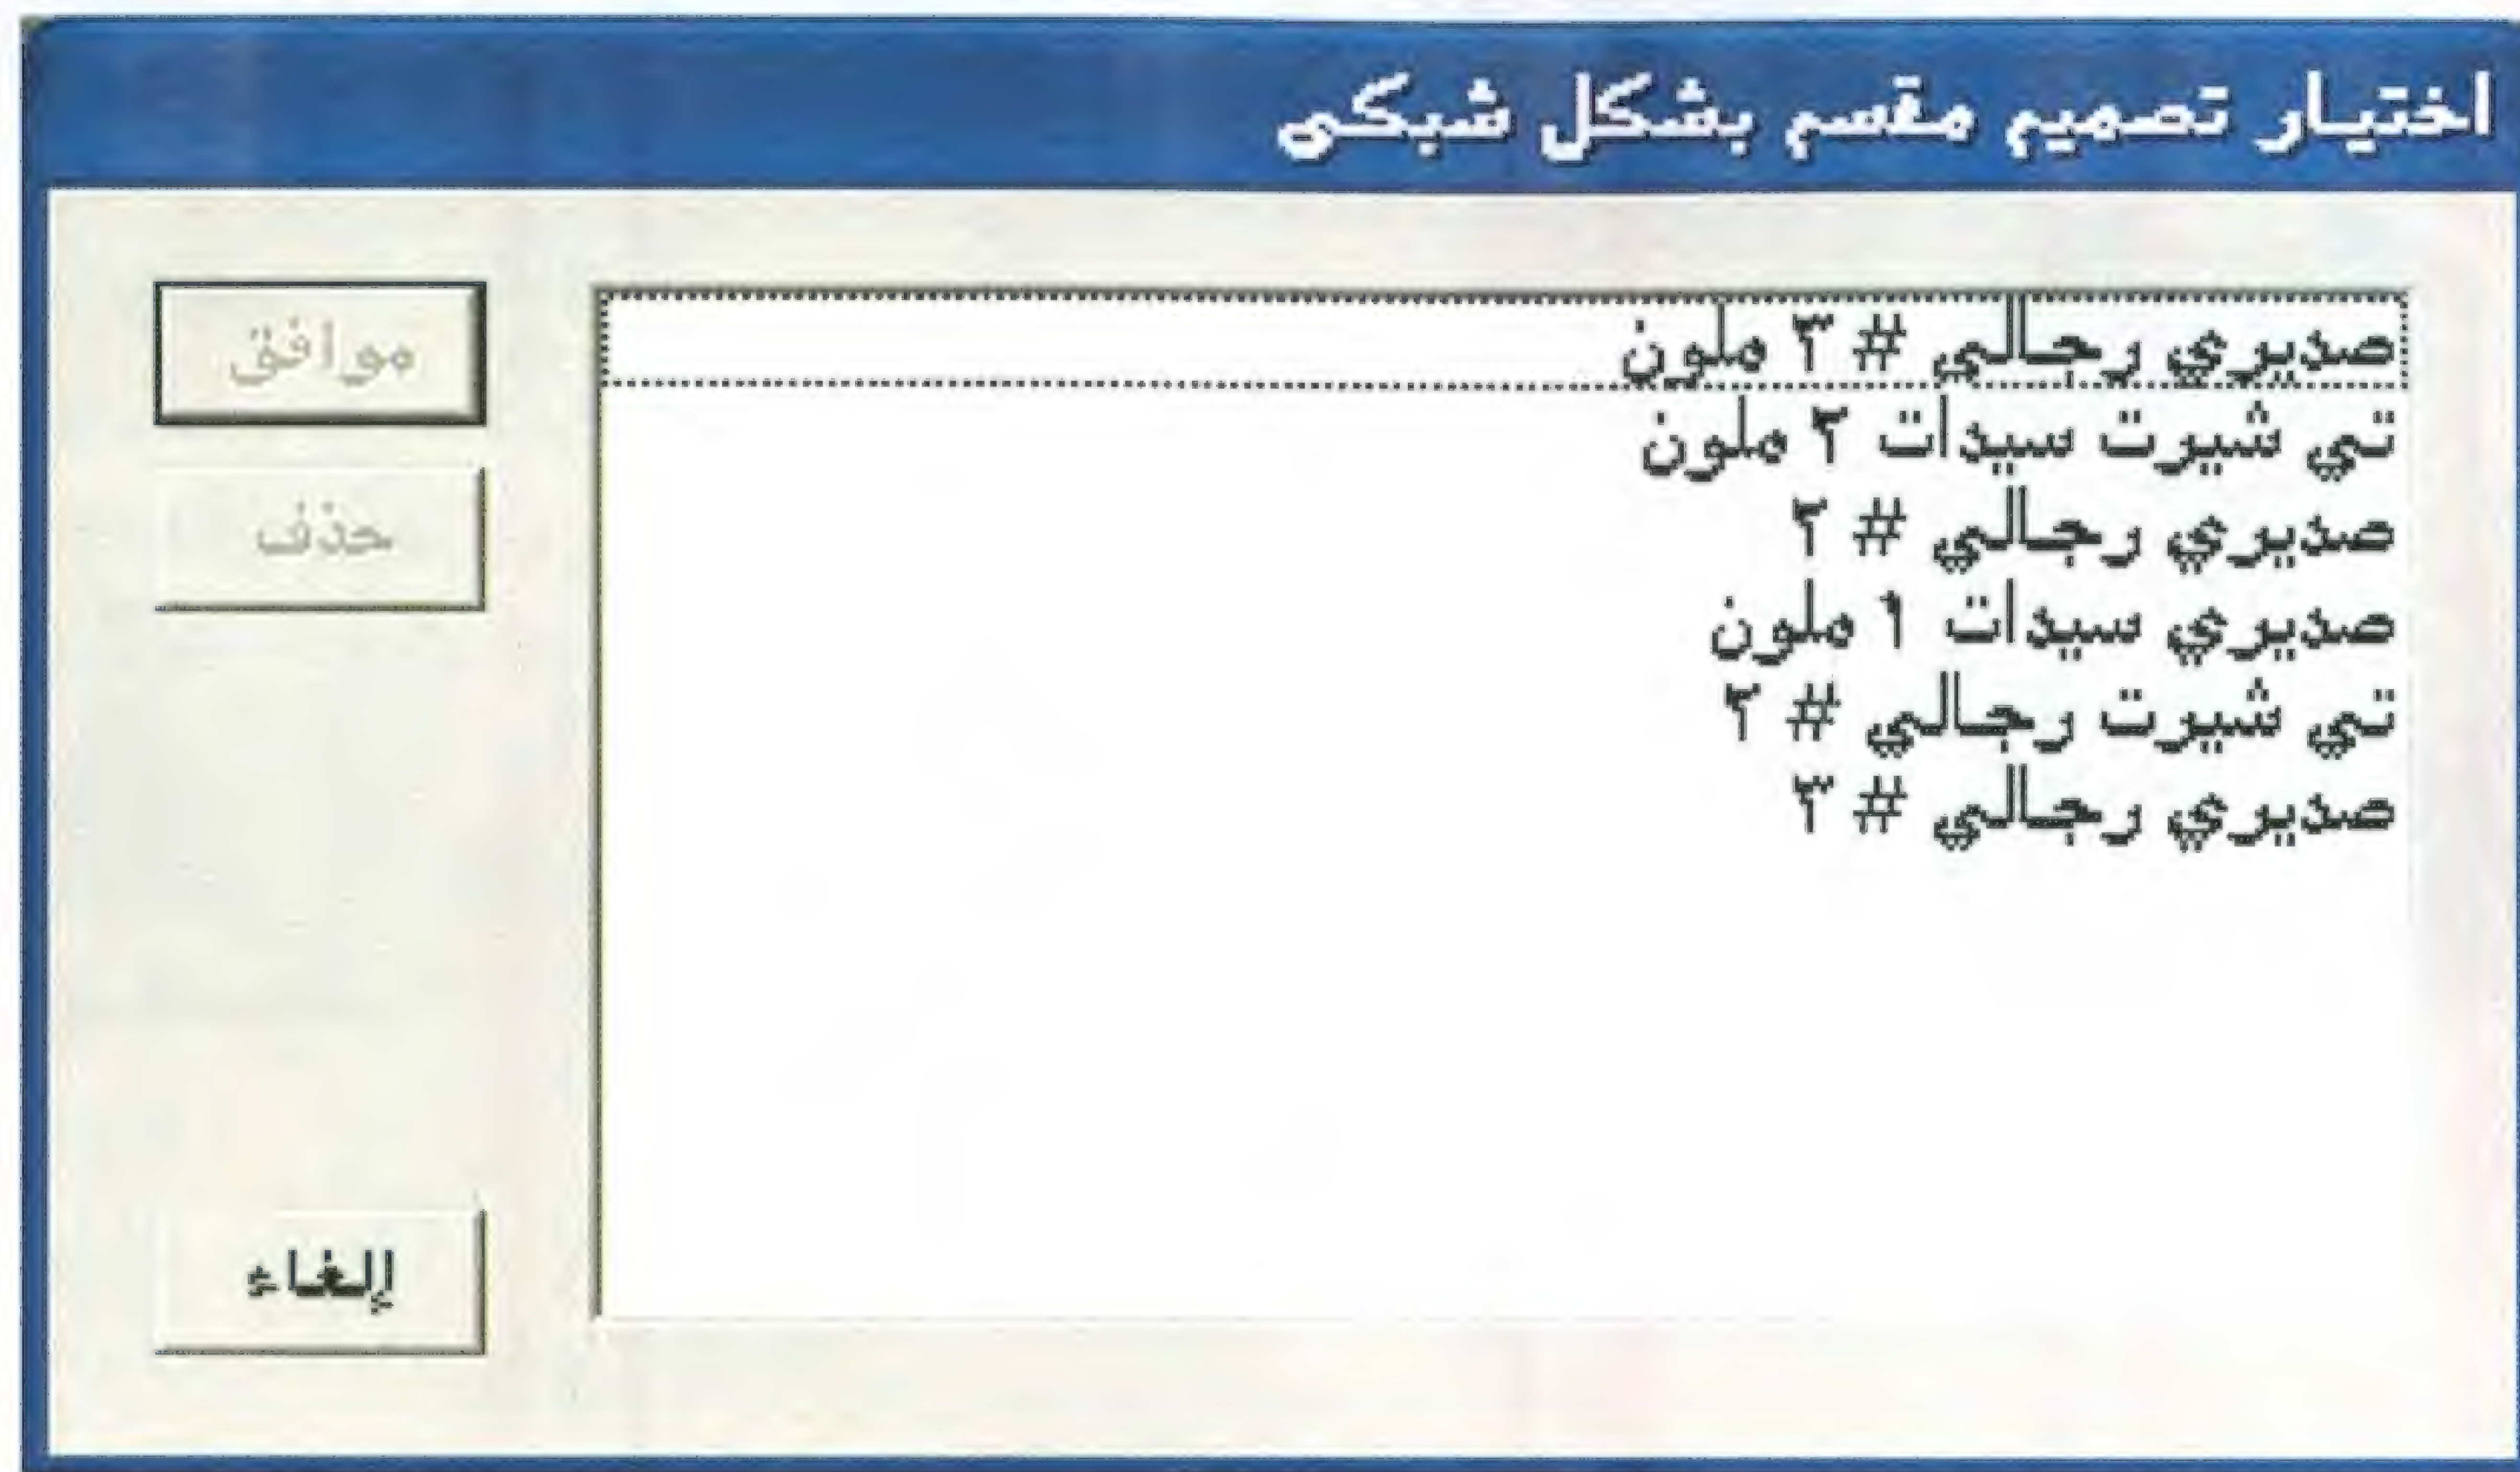 اختيار تصميم مقسم بشكل شبكى
صديري رجالي # ٣ ملون
تي شيرت سيدات ٢ ملون
صديري رجالي # ٢
صديري سيدات ١ ملون
تي شيرت رجالي # ٢
صديري رجالي # ٣
موافق
حذف
إلغاء